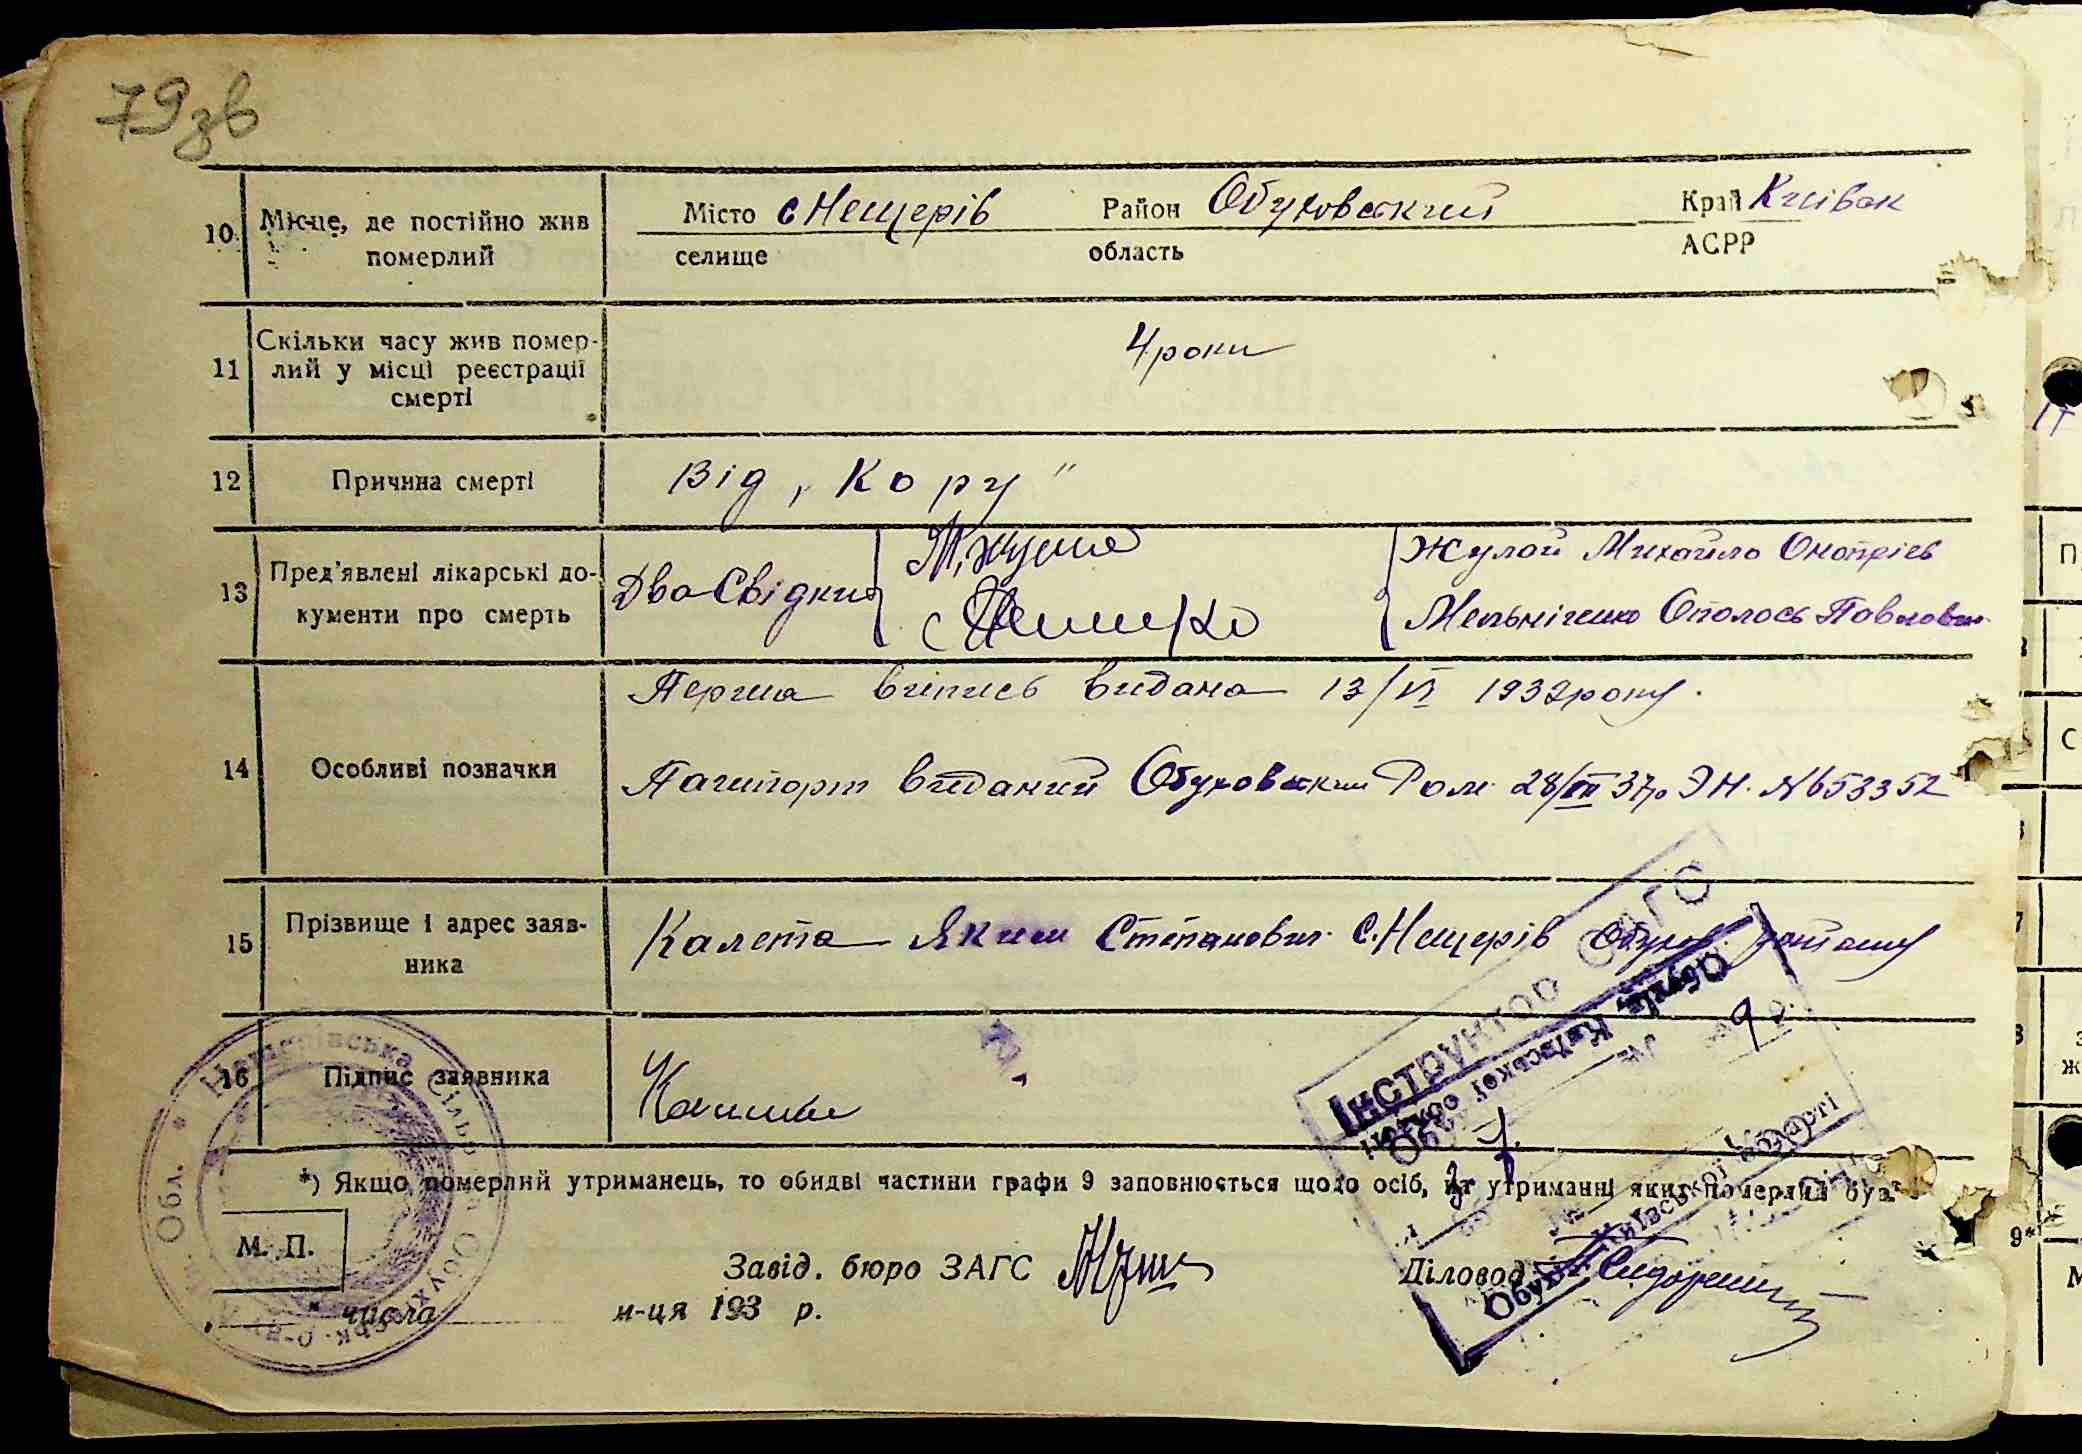 79зв
10. Місце, де постійно жив померлий
Місто селище с Нещерів Район область Обуховський Край АСРР Київськ
11 Скільки часу жив помер-
лий у місці реєстрації
смерті
4 роки
12 Причина смерті
Від „Кору"
13 Пред'явлені лікарські до-
кументи про смерть
Два Свідки
Жулай Михайло Онопріев
Мельніченко Опанас Павлович
14 Особливі позначки
Перша випись видана 13/VI 1939 року.
Пашпорт виданий Обуховским 28/VII 37р ЭН. №653352
15 Прізвище і адрес заяв-
ника
Калета Яким Степанович с. Нещерів Обухов району
16 Підпис заявника
*) Якщо померлий утриманець, то обидві частини графи 9 заповнюється щодо осіб, на утриманні яких померлий був.
М. П.
Завід. бюро ЗАГС
Діловод
числа м-ця 193 р.
Інструктор ЗАГС
Київської області